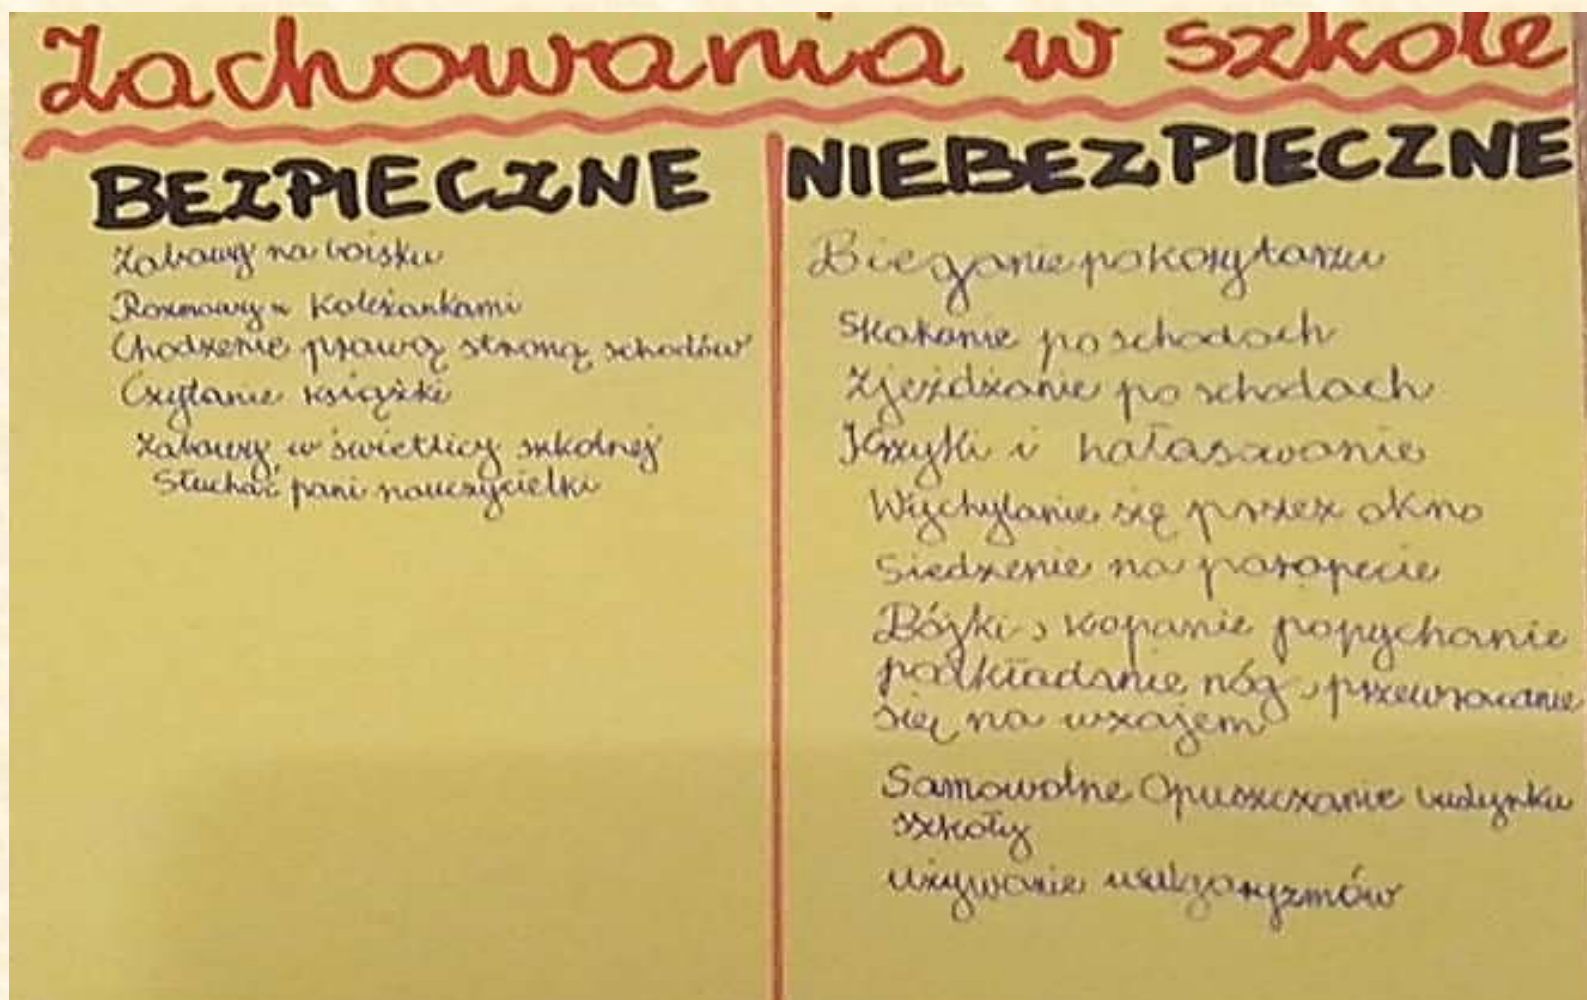 Zachowania w szkole
BEZPIECZNE
Zabawy na boisku
Rozmowy z Koleżankami
Chodzenie prawą stroną schodów
Czytanie książki
Zabawy w świetlicy szkolnej
Słuchać pani nauczycielki
NIEBEZPIECZNE
Bieganie po korytarzu
Skakanie po schodach
Zjeżdżanie po schodach
Krzyki i hałasowanie
Wychylanie się przez okno
Siedzenie na parapecie
Bójki, kopanie popychanie
podkładanie nóg, przewracanie
się na wzajem
Samowolne Opuszczanie budynku
szkoły
używanie wulgaryzmów